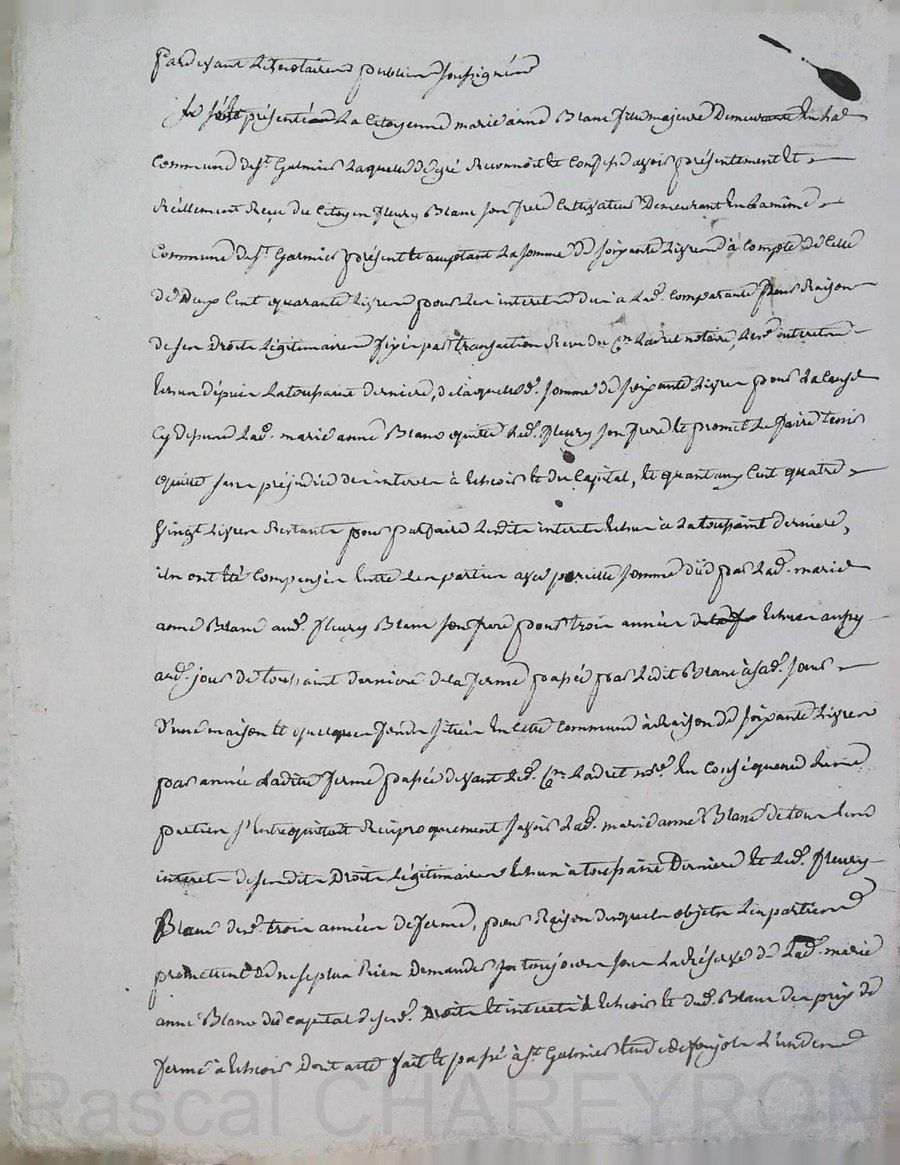 Pardevant les notaires publics soussignés
s'est présentée La Citoyenne marie anne Blanc fille majeure Demeurante En la
Commune de St. Galmier Laquelle de gré Reconnoit et Confesse avoir présentement et
Réellement Reçu du Citoyen fleury Blanc son frere Cultivateur Demeurant En la même
Commune de St. Galmier présent et acceptant La somme de soixante Livres à Compte de Celle
de Deux Cent quarante Livres pour Les interets dus a Lad. Comparante pour Raison
de ses Droits Légitimaires fixés par transaction Recue du Cen. Ladret notaire, Lesd. interets
Echus dépuis La toussaint derniere, de laquelle d. somme de soixante Livres pour La cause
Cy dessus Lad. marie anne Blanc quitte Led. fleury son frere et promet Le faire tenir
quitte sans préjudice des interets à Echeoir et du Capital, et quant aux Cent quatre
vingt Livres Restants pour parfaire Lesdits interets Echus à La toussaint derniere,
ils ont été Compensés Entre Les parties avec pareille somme düe par Lad. marie
anne Blanc aud. fleury Blanc son frere pour trois années Echues aussy
aud. jour de toussaint derniere de la ferme passée par Ledit Blanc à sad. soeur
D'une maison et quelques fonds situés En Cette Commune à Raison de soixante Livres
par année Ladite ferme passée devant Led. Cen. Ladret nre. En Conséquence Lesd.
parties s'Entrequittent Réciproquement savoir Lad. marie anne Blanc de tous Lesd.
interets desesdits Droits Légitimaires Echus à toussaint Derniere et Led. fleury
Blanc desd. trois années de ferme, pour Raison desquels objets Les parties
promettent de ne se plus Rien Demander sous La Réserve de Lad. marie
anne Blanc du Capital desesd. Droits et interets à Echeoir et dud. Blanc des prix de
ferme à Echeoir Dont acte fait et passé à St. Galmier Etude de foujols L'un des
Pascal CHAREYRON